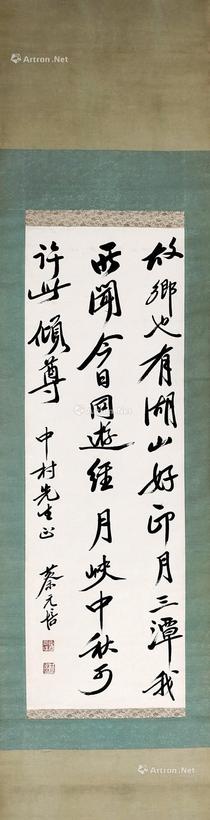 故鄉也有湖山好印月三潭我
所聞今日同遊經月峽中秋可
許此傾尊
中村先生正
蔡元培
Artron.Net
Artron.Net
Artron.Net